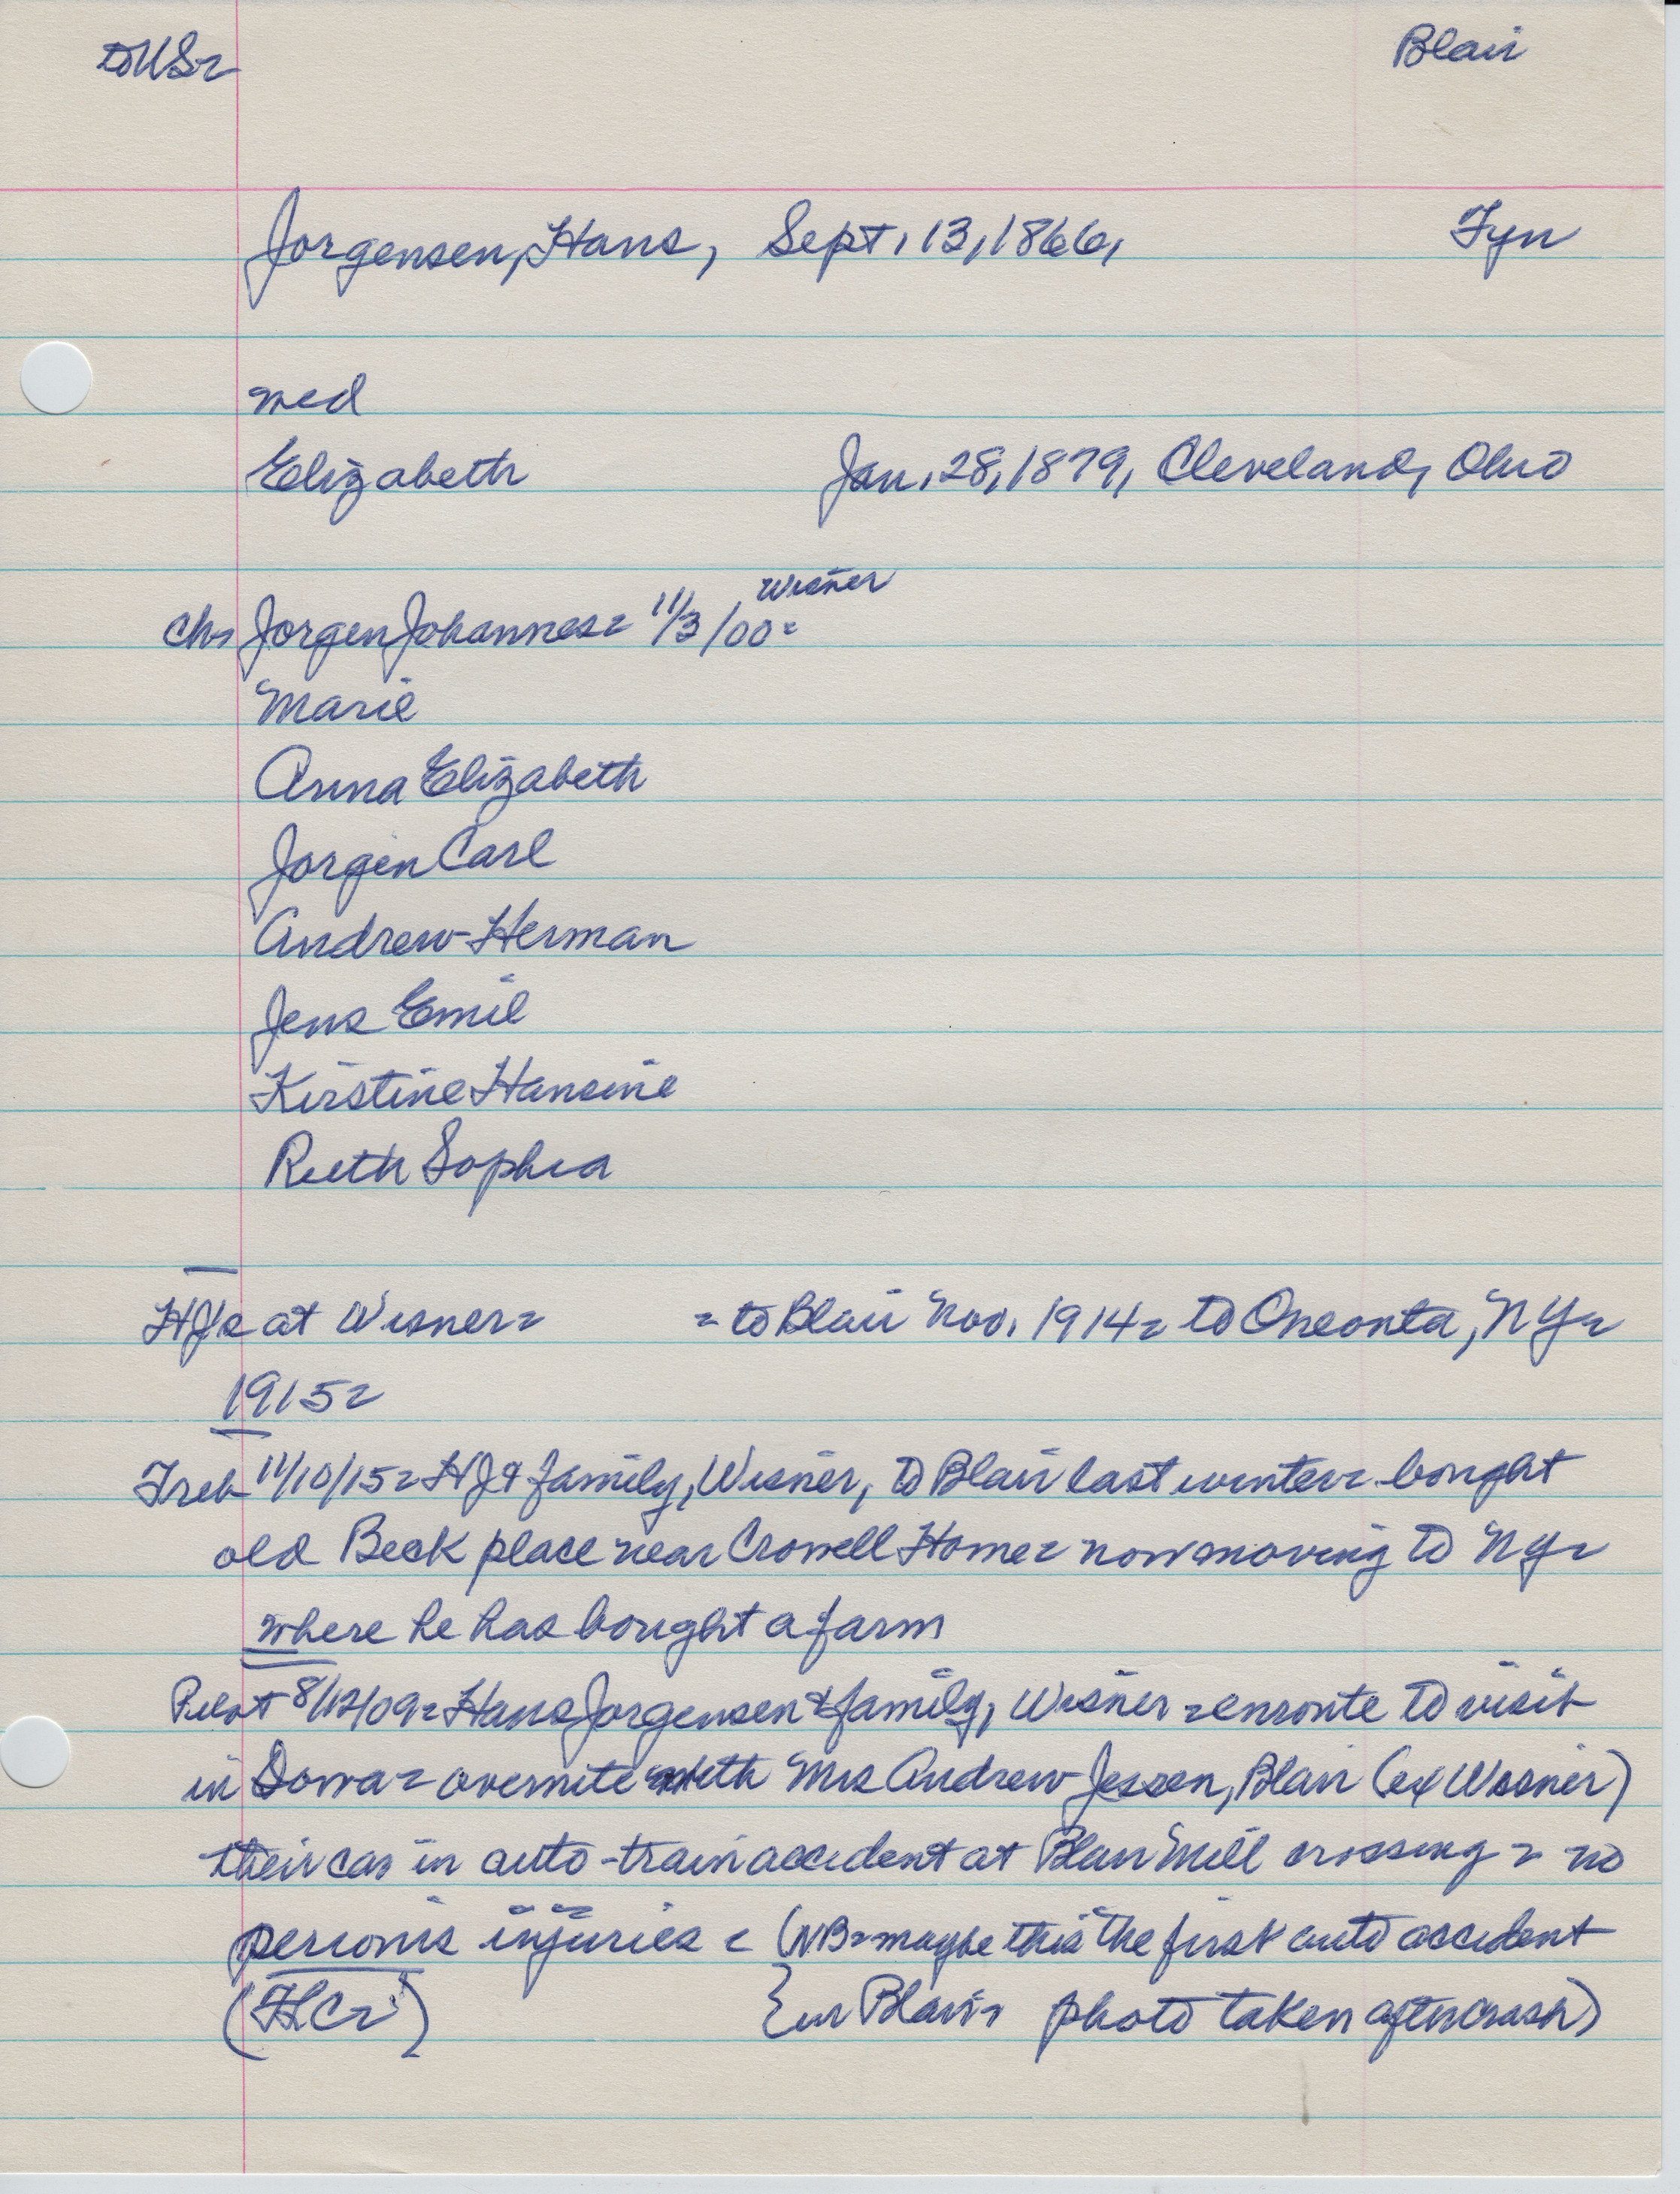 toUS= Blair
Jorgensen, Hans, Sept. 13, 1866, Fyn
med
Elizabeth Jan. 28, 1879, Cleveland, Ohio
Wisner
ch= Jorgen Johannes= 11/3/00=
Marie
Anna Elizabeth
Jorgen Carl
Andrew Herman
Jens Emil
Kirstine Hansine
Ruth Sophia
HJs at Wisner= = to Blair Nov. 1914= to Oneonta, NY=
1915=
11/10/15= HJ & family, Wisner, to Blair last winter= bought
old Beck place near Crowell Home= now moving to NY=
where he has bought a farm
Pilot 8/12/09= Hans Jorgensen & family, Wisner =enroute to visit
in Iowa= overnite with Mrs Andrew Jessen, Blair (ex Wisner)
their car in auto-train accident at Blair Mill crossing = no
persons injuries = (NB=maybe this the first auto accident
(HC=) {in Blair= photo taken after crash)